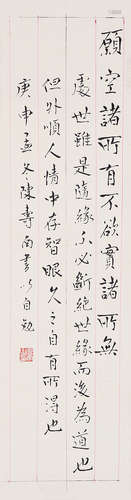 願空諸所有不欲實諸所無
處世雖是隨緣亦不必斷絕世緣而後為道也
但外順人情中存智眼久之自有所得也
庚申孟冬陳壽南書以自勉